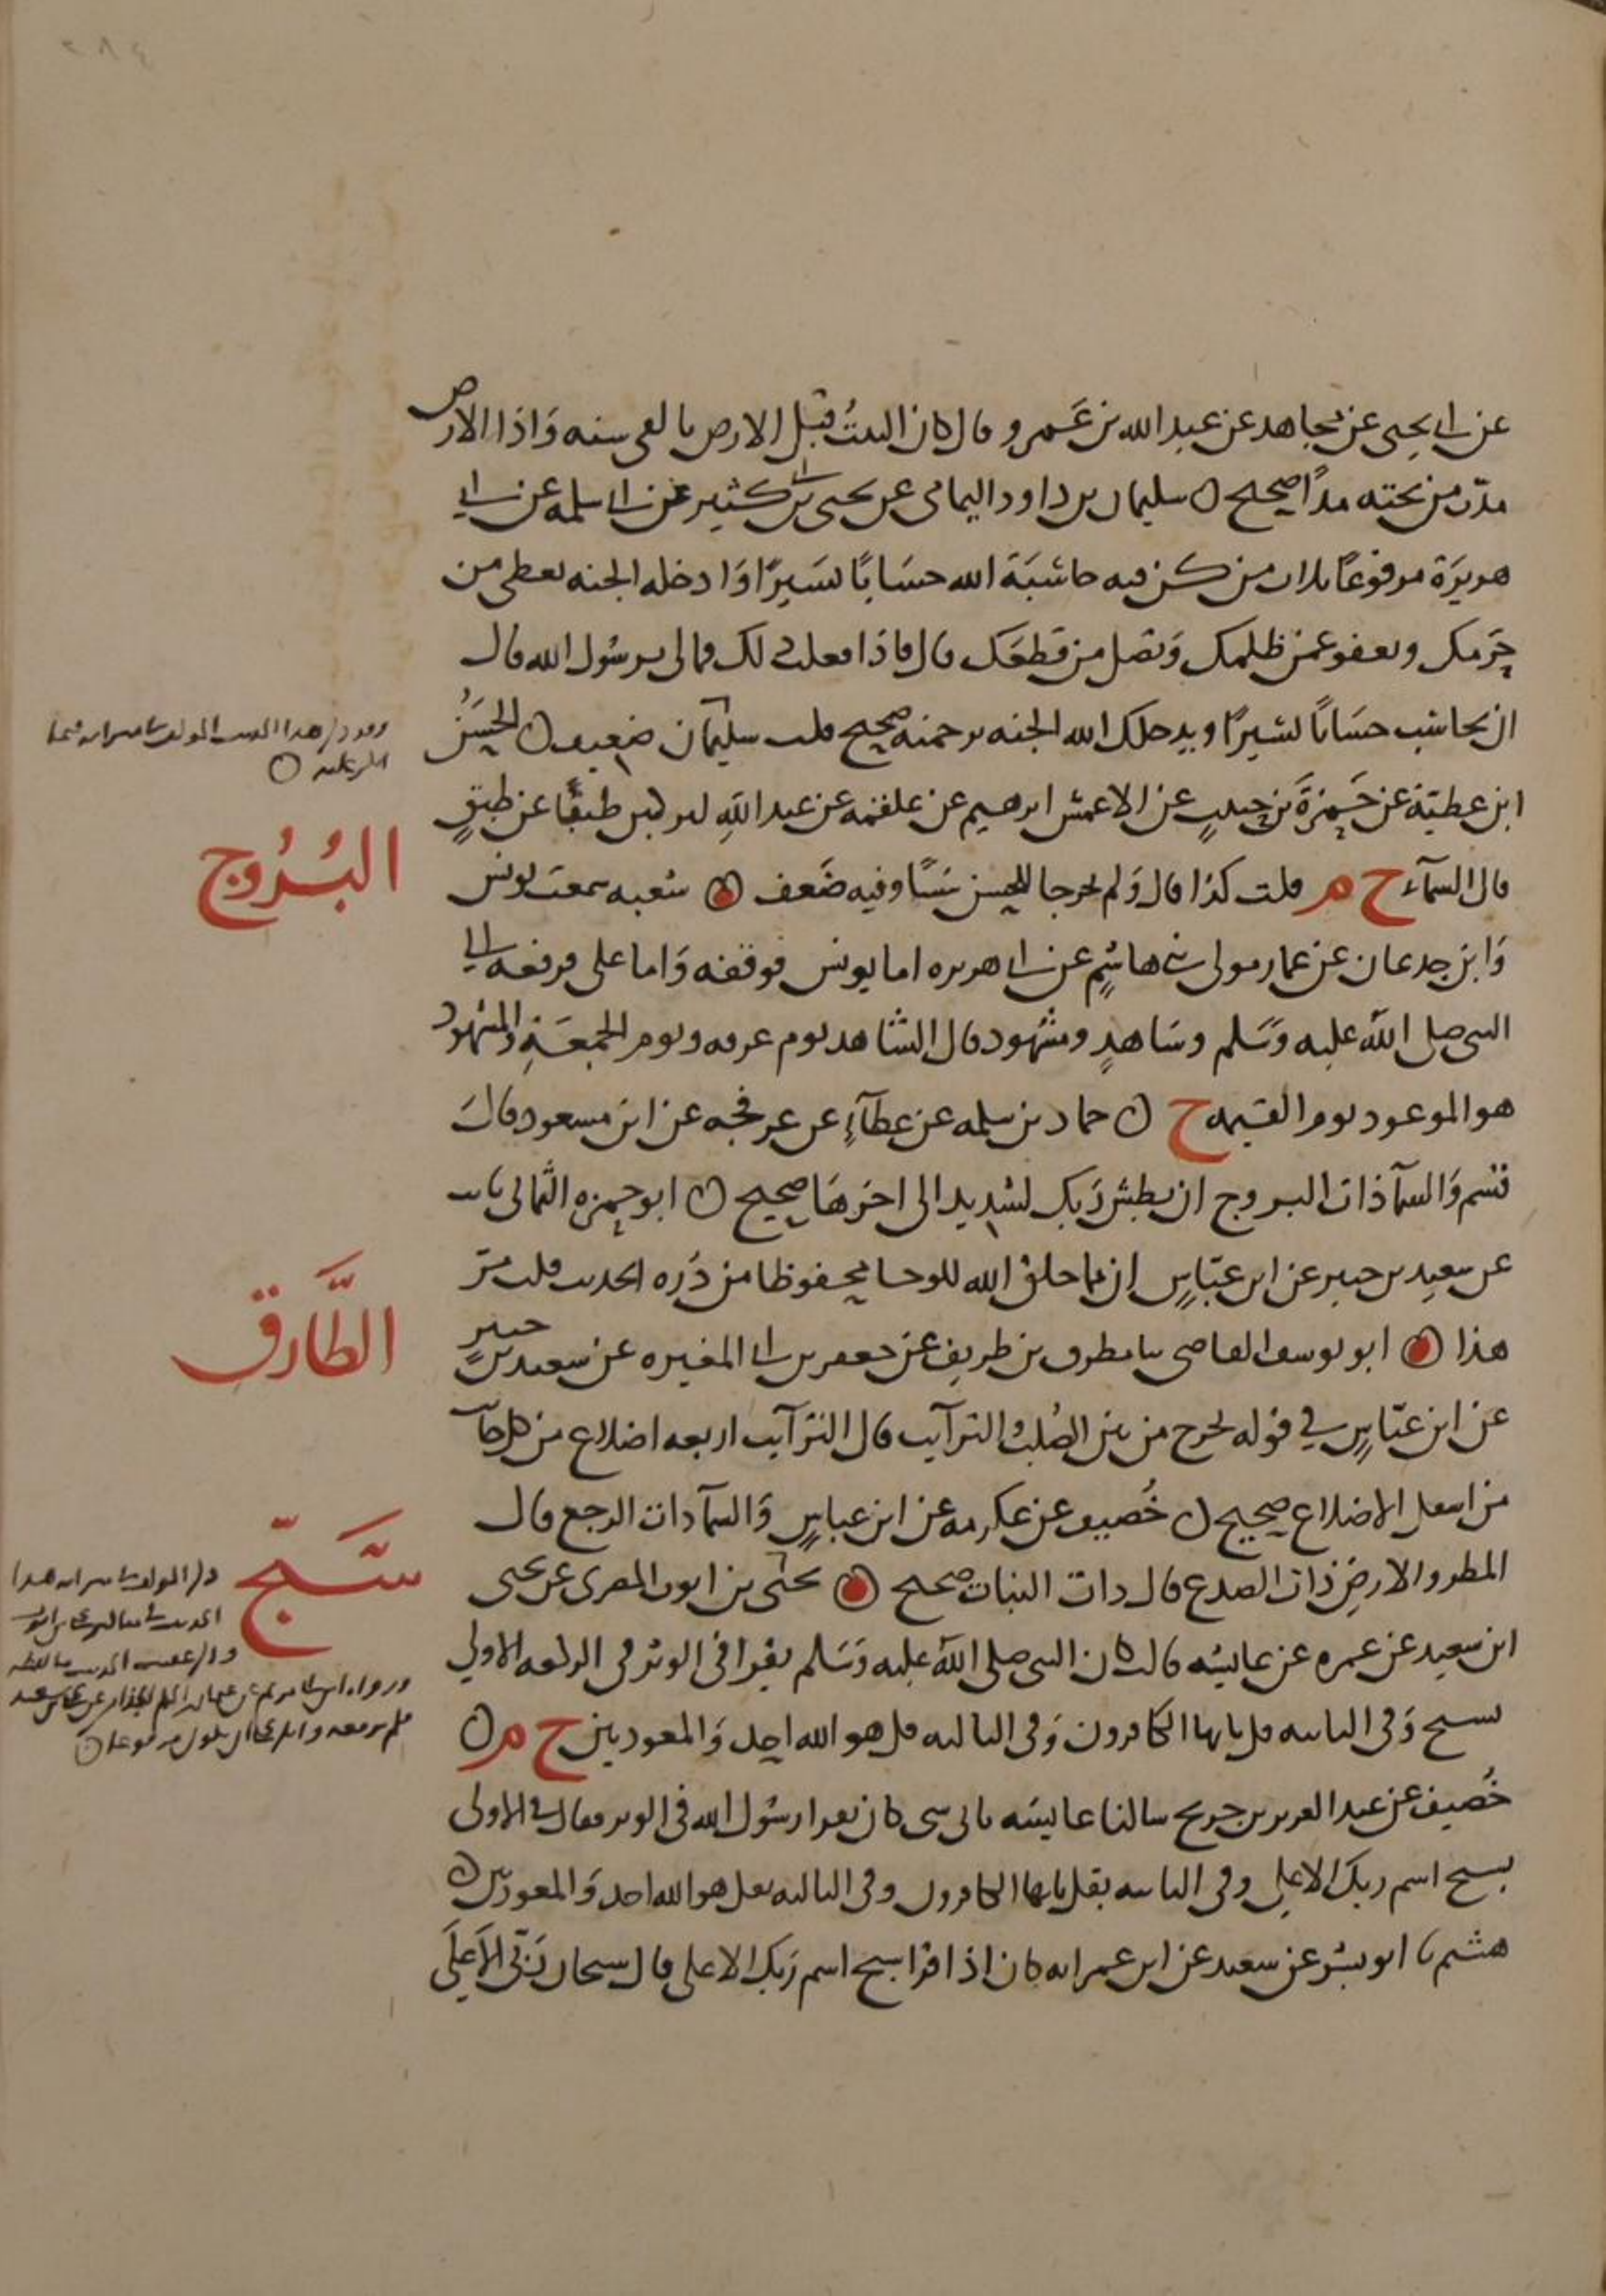 ٢٨٤
عن ابي يحيى عن مجاهد عن عبد الله بن عَمرو قال كان البيتُ قبل الارض بالفى سنه وَاذا الارض
مدّت من تحته مدًّا صحيح ○ سليمان بن داود اليمامى عن يحيى بن ابي كثير عن ابي سلمه عن ابي
هريرَة مرفوعًا ثلاث من كن فيه حاسَبَه الله حسَابًا يسَيرًا وَادخله الجنه تعطى من
حَرمك وتعفو عمن ظلمك وَتصل من قطعَك قال فاذا فعلت ذلك فمالى يرسُول الله قال
ان تحاسَب حسَابًا يسَيرًا ويدخلك الله الجنه برحمته صحيح قلت سليمان ضعيف ○ الحسَنُ
ابن عطيّة عن حَمزةَ بن حبيبٍ عن الاعمش ابرهيم عن علقمه عن عبد اللهِ لتركبن طبقًا عن طبقٍ
قال السمآء خ م قلت كذا قال وَلم يخرجا للحسن شَيًا وفيه ضَعف ○ شعبه سمعت يونس
وَابن جدعان عن عمار مولى بني هاشمٍ عن ابي هريره اما يونس فوقفه وَاما على فرفعه الى
النبى صلى الله عليه وَسَلم وشَاهدٍ ومشهود قال الشاهد يوم عرفه ويوم الجمعَةِ وَالمشهود
هو الموعود يوم القيمه خ ○ حماد بن سلمه عن عطآءٍ عن عرفجه عن ابن مسعود قالَ
قسَم وَالسمآ ذات البروج ان بطش رَبك لشديد الى اخرهَا صحيح ○ ابو حمزه الثمالى
عن سعيد بن جبير عن ابن عبّاسٍ ان مما خلق الله للوحا محفوظا من دُره الحديث قلت مرّ
هذا ○ ابو يوسف القاضى ثنا مطرف بن طريف عن جعفر بن ابي المغيره عن سعيد بن جبيرٍ
عن ابن عبّاسٍ في قوله يخرج من بين الصُلب والترآيب قال الترآيب اربعه اضلاع من كل جانب
من اسفل الاضلاع صحيح ○ خُصيف عن عكرمه عن ابن عباسٍ وَالسمآ ذات الرجع قال
المطر والارضِ ذات الصدع قال ذات النبات صحيح ○ يحيَى بن ايوب المصرى عن يحيى
ابن سعيد عن عمره عن عايشه قالت كان النبى صلى الله عليه وَسَلم يقرا فى الوتر فى الركعه الاولي
بسبح وَفى الثانيه قل يايها الكافرون وَفى الثالثه قل هو الله احد وَالمعوذتين خ م ○
خُصيف عن عبد العزيز بن جريج سالنا عايشه باى شى كان يقرا رسُول الله فى الوتر فقالت فى الاولى
بسبح اسم ربك الاعلى وفى الثانيه بقل يايها الكافرون وفى الثالثه بقل هو الله احد وَالمعوذتين ○
هشيم نا ابو بشر عن سعيد عن ابن عمر انه كان اذا قرا سبح اسم رَبك الاعلى قال سبحان رَبّى الاَعلَى
البُرُوج
الطَّارق
سَبّح